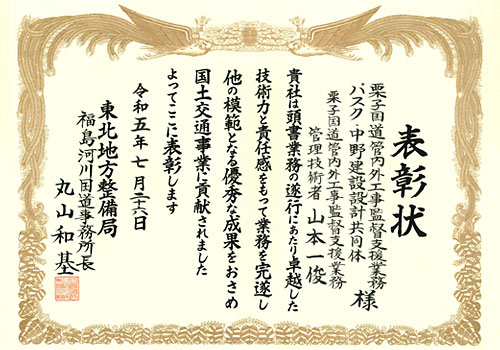 表彰状
栗子国道管内外工事監督支援業務
パスク・中野建設設計共同体 様
栗子国道管内外工事監督支援業務
管理技術者 山本一俊
貴社は頭書業務の遂行にあたり卓越した
技術力と責任感をもって業務を完遂し
他の模範となる優秀な成果をおさめ
国土交通事業に貢献されました
よってここに表彰します
令和五年七月二十六日
東北地方整備局
福島河川国道事務所長
丸山和基